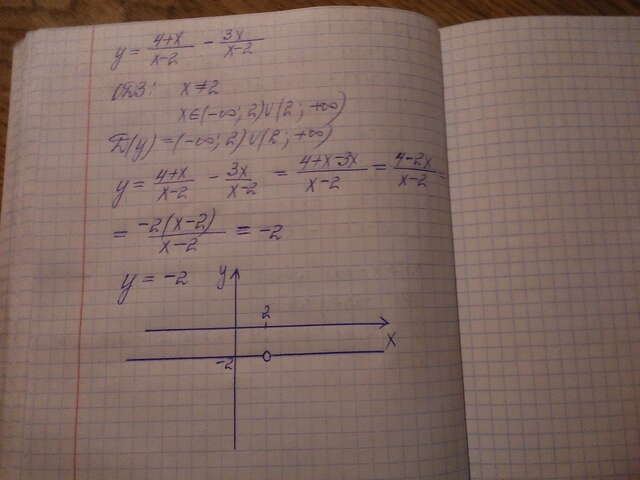 y = \frac{4+x}{x-2} - \frac{3x}{x-2}
ОДЗ: x ≠ 2
x ∈ (-∞; 2) ∪ (2; +∞)
D(y) = (-∞; 2) ∪ (2; +∞)
y = \frac{4+x}{x-2} - \frac{3x}{x-2} = \frac{4+x-3x}{x-2} = \frac{4-2x}{x-2} =
= \frac{-2(x-2)}{x-2} = -2
y = -2
y
2
x
-2